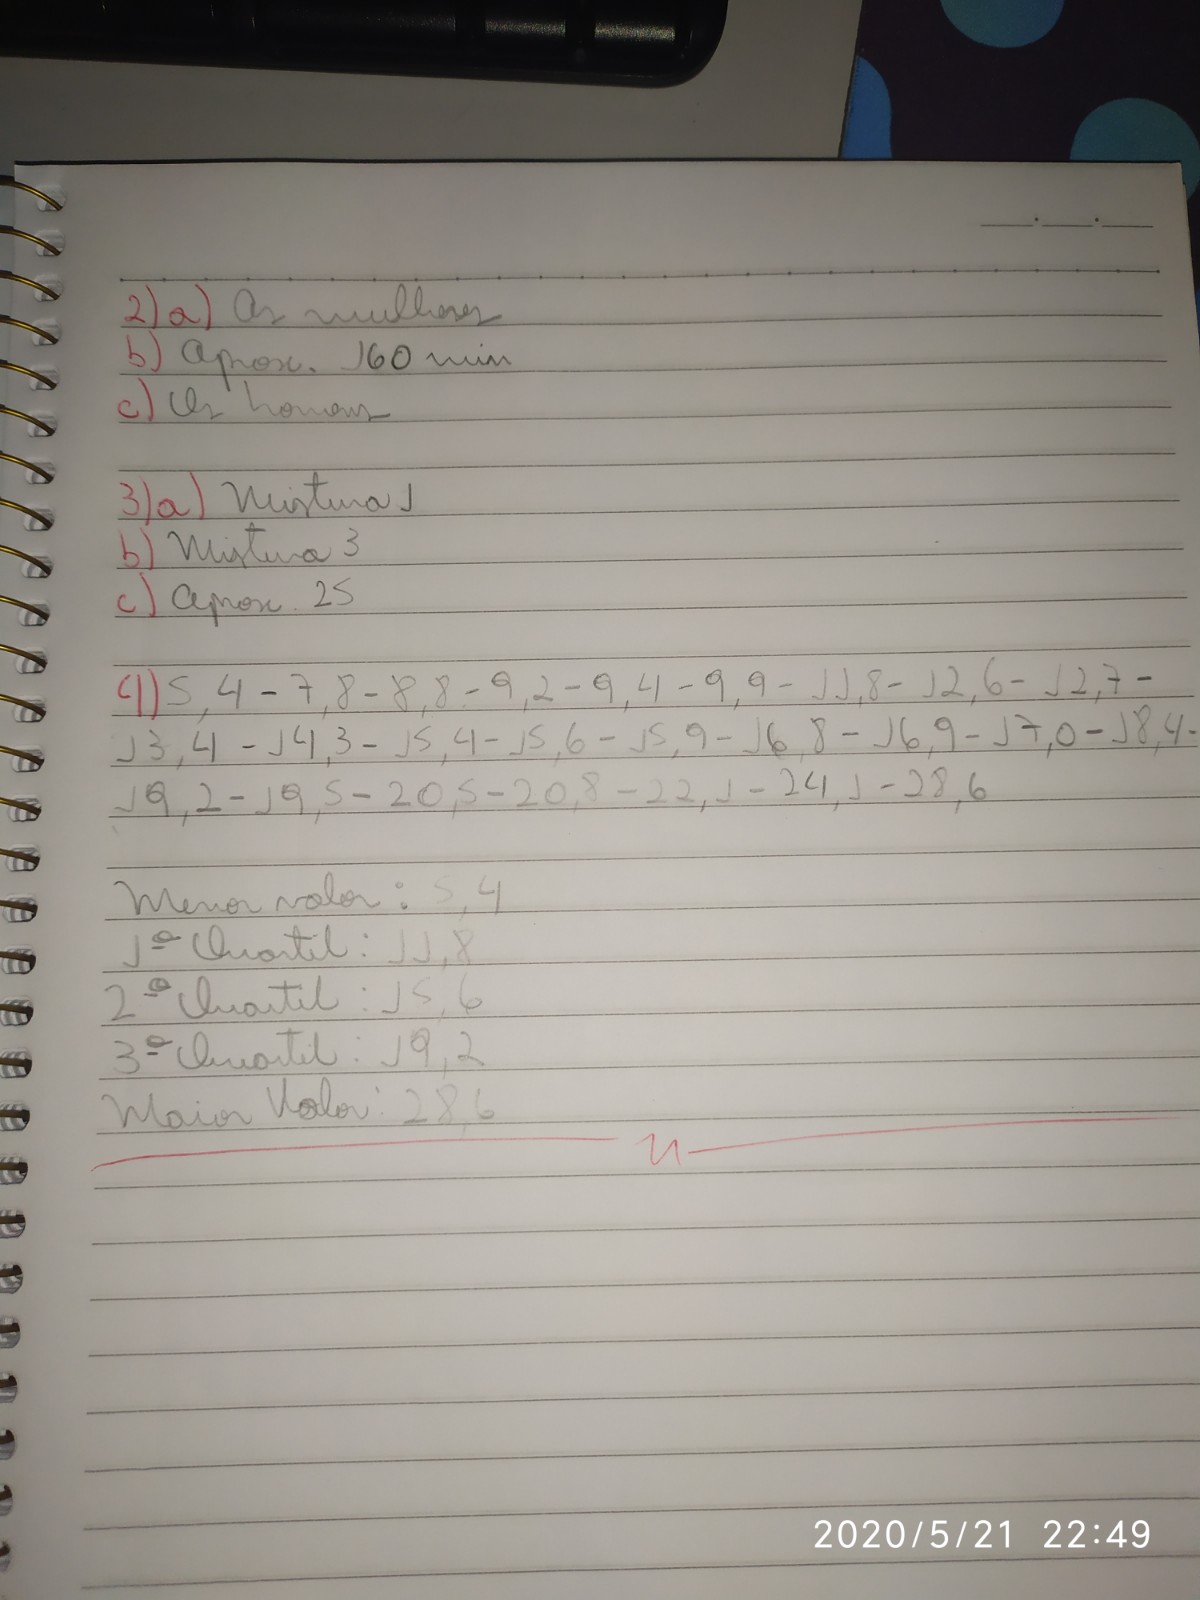 2)a) As mulheres
b) Aprox. 160 min
c) Os homens
3)a) Mistura 1
b) Mistura 3
c) Aprox. 25
4) 5,4 - 7,8 - 8,8 - 9,2 - 9,4 - 9,9 - 11,8 - 12,6 - 12,7 -
13,4 - 14,3 - 15,4 - 15,6 - 15,9 - 16,8 - 16,9 - 17,0 - 18,4 -
19,2 - 19,5 - 20,5 - 20,8 - 22,1 - 24,1 - 28,6
Menor valor: 5,4
1º Quartil: 11,8
2º Quartil: 15,6
3º Quartil: 19,2
Maior Valor: 28,6
2020/5/21 22:49